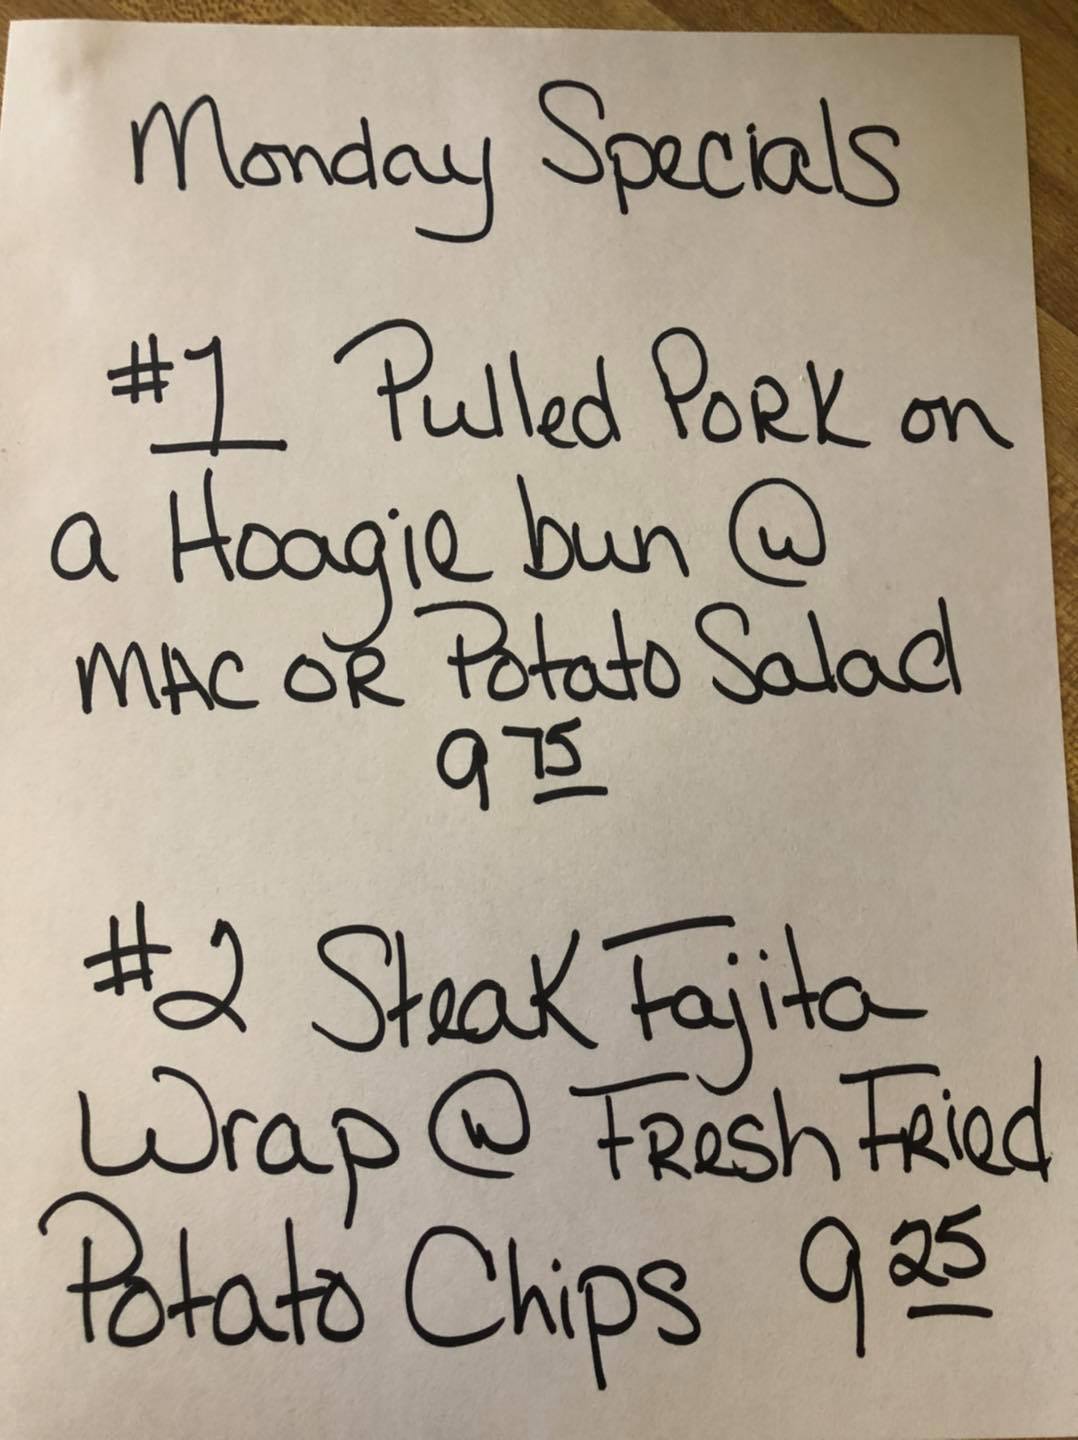 Monday Specials
#1 Pulled Pork on
a Hoagie bun ⓦ
MAC OR Potato Salad
9 75
#2 Steak Fajita
Wrap ⓦ Fresh Fried
Potato Chips 9 25